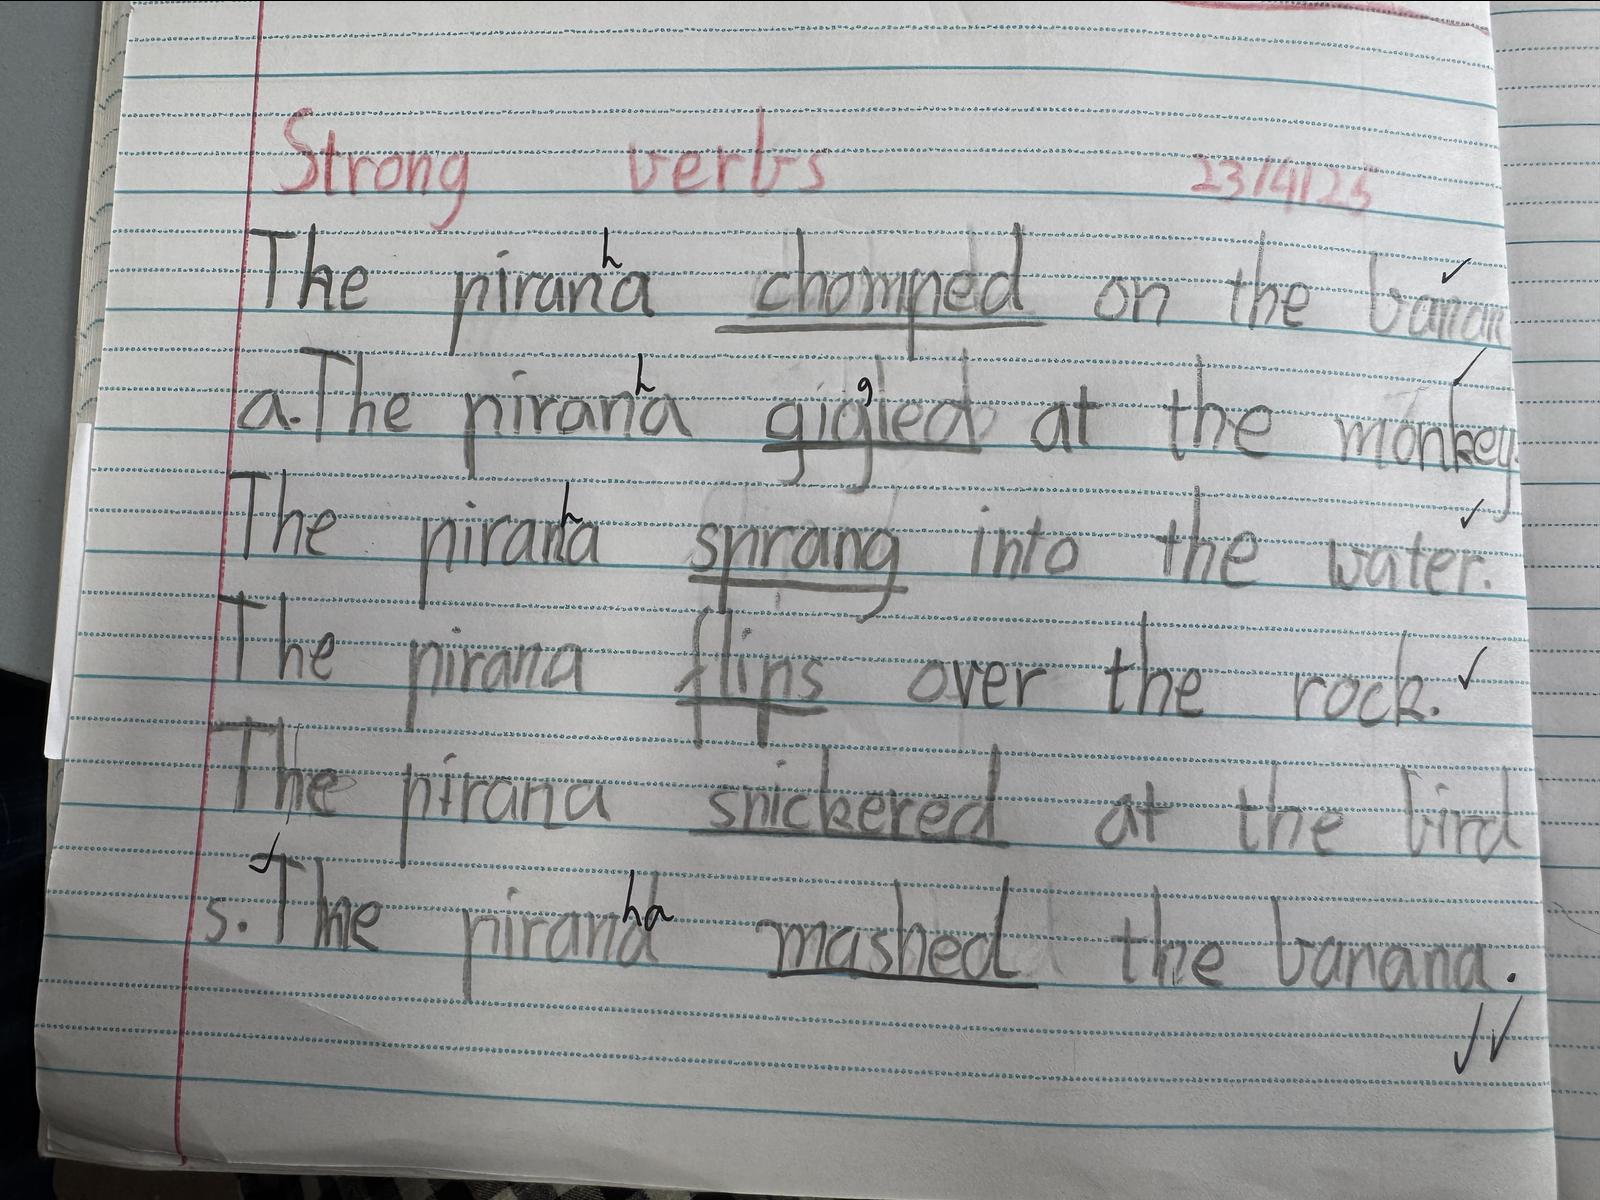 Strong verbs 23/4/25
The piranha chomped on the banan
a. The piranha giggled at the monkey.
The piranha sprang into the water.
The pirana flips over the rock.
The pirana snickered at the bird
s. The piranha mashed the banana.